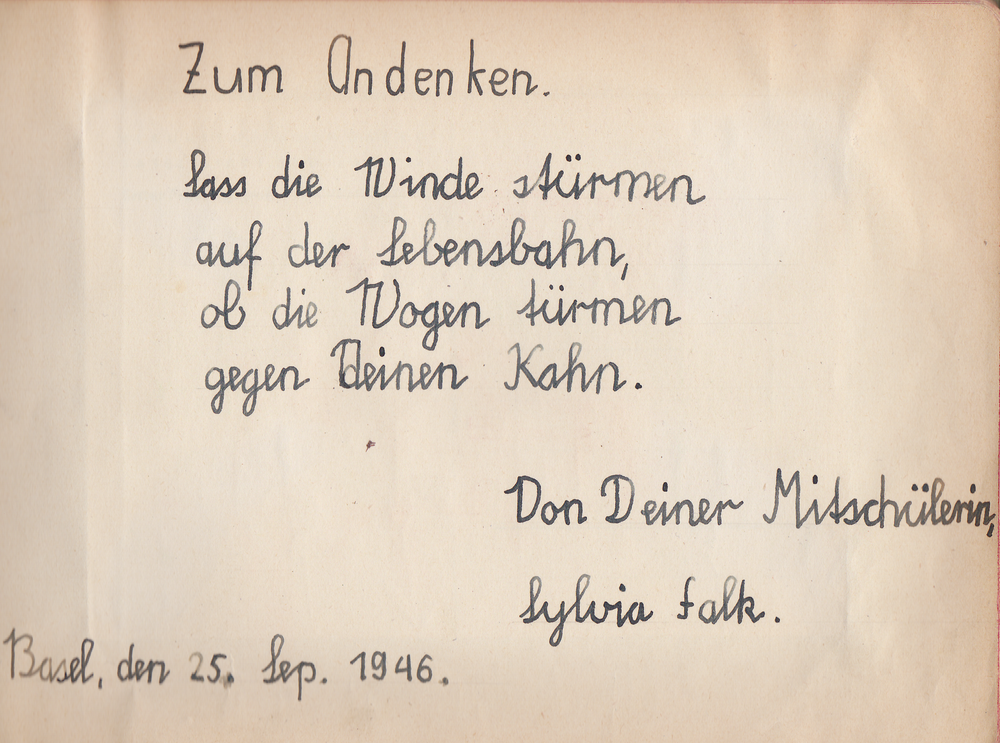 Zum Andenken.
Lass die Winde stürmen
auf der Lebensbahn,
ob die Wogen türmen
gegen Deinen Kahn.
Von Deiner Mitschülerin,
Sylvia Falk.
Basel, den 25. Sep. 1946.